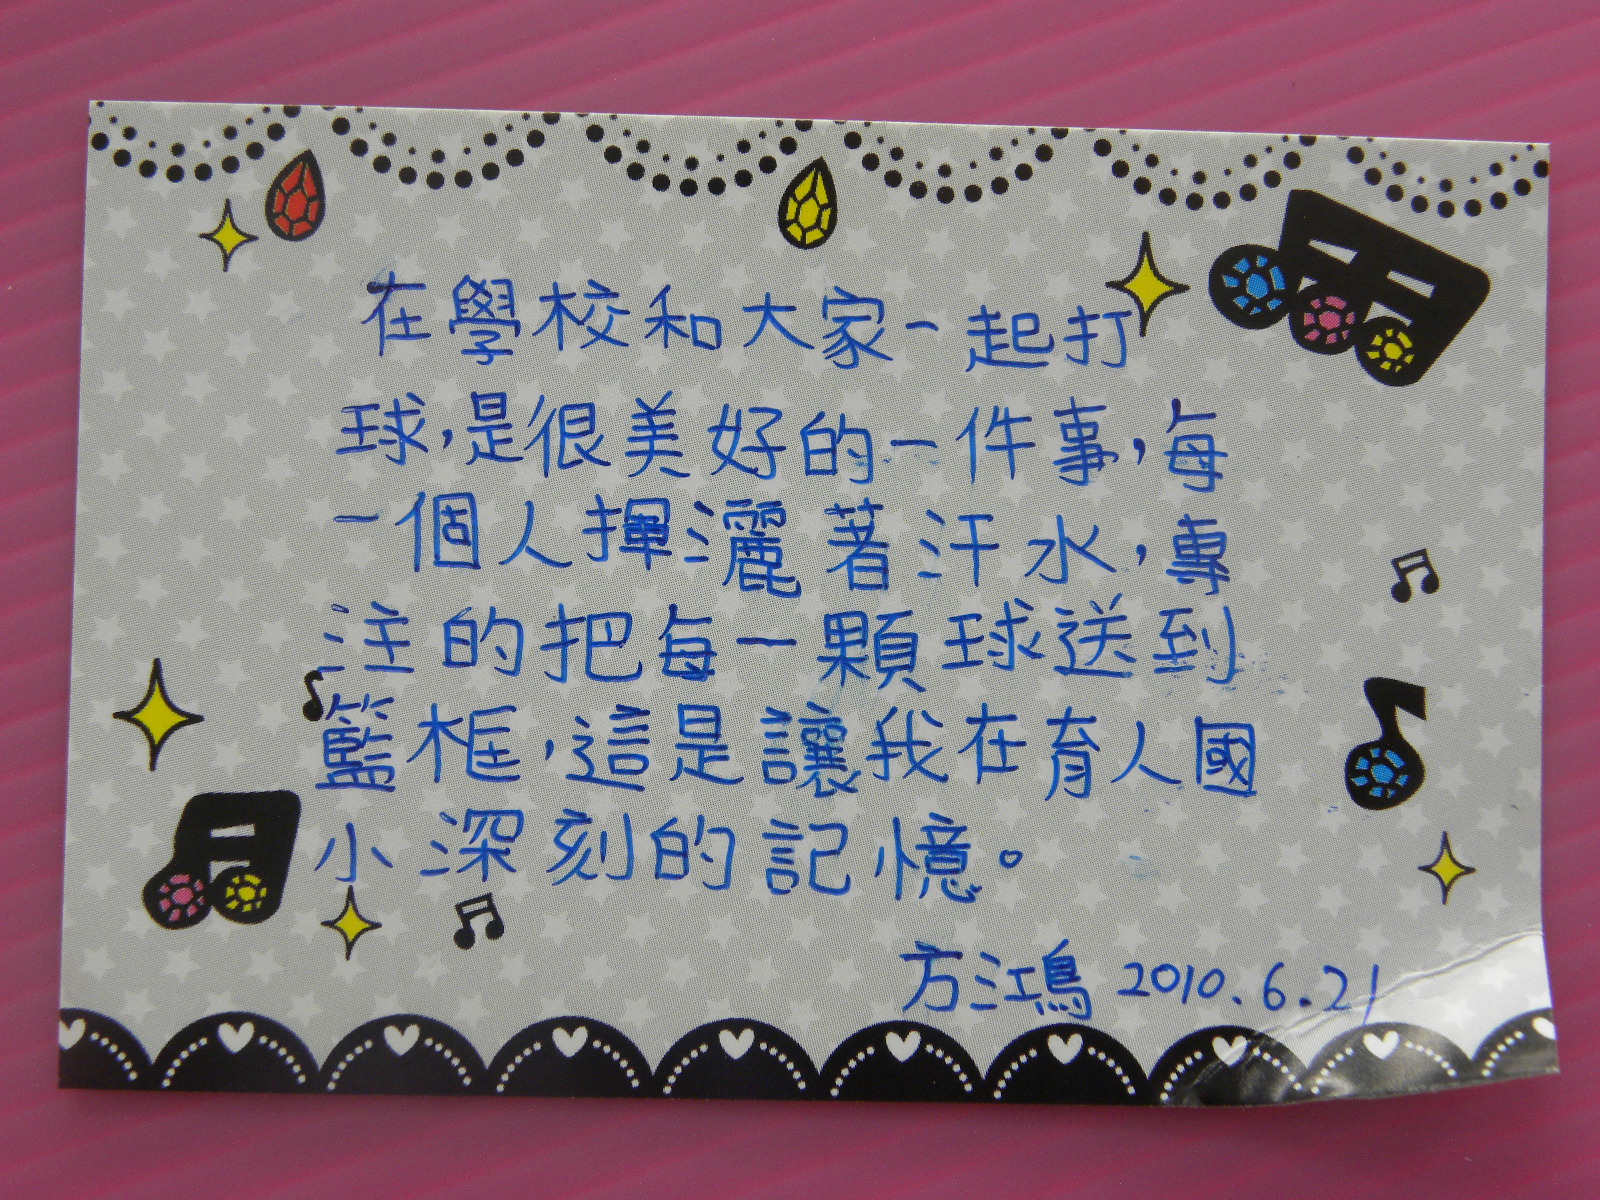 在學校和大家一起打
球,是很美好的一件事,每
一個人揮灑著汗水,專
注的把每一顆球送到
籃框,這是讓我在育人國
小深刻的記憶。
方江鴻 2010.6.21